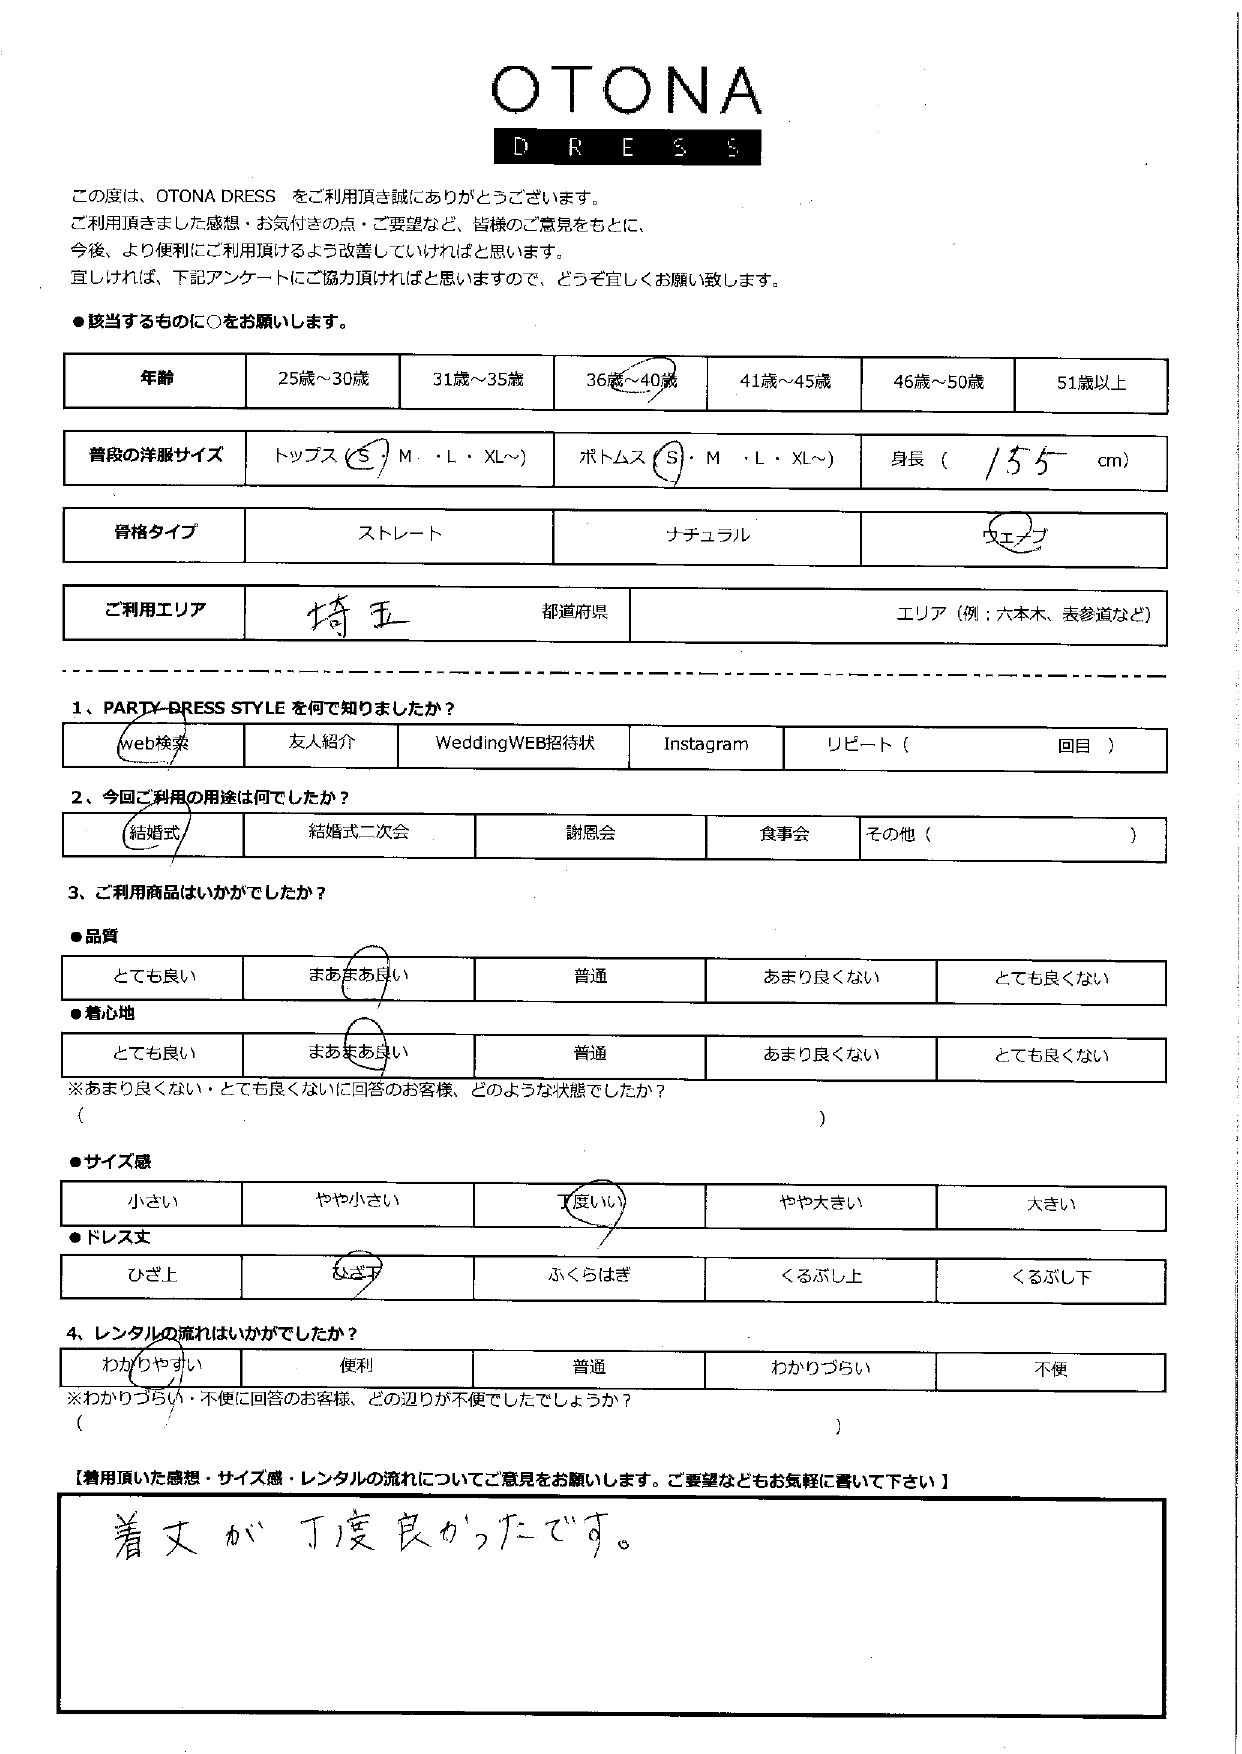 OTONA
DRESS
この度は、OTONA DRESS　をご利用頂き誠にありがとうございます。
ご利用頂きました感想・お気付きの点・ご要望など、皆様のご意見をもとに、
今後、より便利にご利用頂けるよう改善していければと思います。
宜しければ、下記アンケートにご協力頂ければと思いますので、どうぞ宜しくお願い致します。
●該当するものに○をお願いします。
年齢 25歳～30歳 31歳～35歳 36歳～40歳 41歳～45歳 46歳～50歳 51歳以上
普段の洋服サイズ トップス（S・M・L・XL～） ボトムス（S・M・L・XL～） 身長（ 155 cm）
骨格タイプ ストレート ナチュラル ウェーブ
ご利用エリア 埼玉 都道府県 エリア（例；六本木、表参道など）
1、PARTY DRESS STYLE を何で知りましたか？
web検索 友人紹介 WeddingWEB招待状 Instagram リピート（ 回目 ）
2、今回ご利用の用途は何でしたか？
結婚式 結婚式二次会 謝恩会 食事会 その他（ ）
3、ご利用商品はいかがでしたか？
●品質
とても良い まあまあ良い 普通 あまり良くない とても良くない
●着心地
とても良い まあまあ良い 普通 あまり良くない とても良くない
※あまり良くない・とても良くないに回答のお客様、どのような状態でしたか？
（ ）
●サイズ感
小さい やや小さい 丁度いい やや大きい 大きい
●ドレス丈
ひざ上 ひざ下 ふくらはぎ くるぶし上 くるぶし下
4、レンタルの流れはいかがでしたか？
わかりやすい 便利 普通 わかりづらい 不便
※わかりづらい・不便に回答のお客様、どの辺りが不便でしたでしょうか？
（ ）
【着用頂いた感想・サイズ感・レンタルの流れについてご意見をお願いします。ご要望などもお気軽に書いて下さい】
着丈が丁度良かったです。